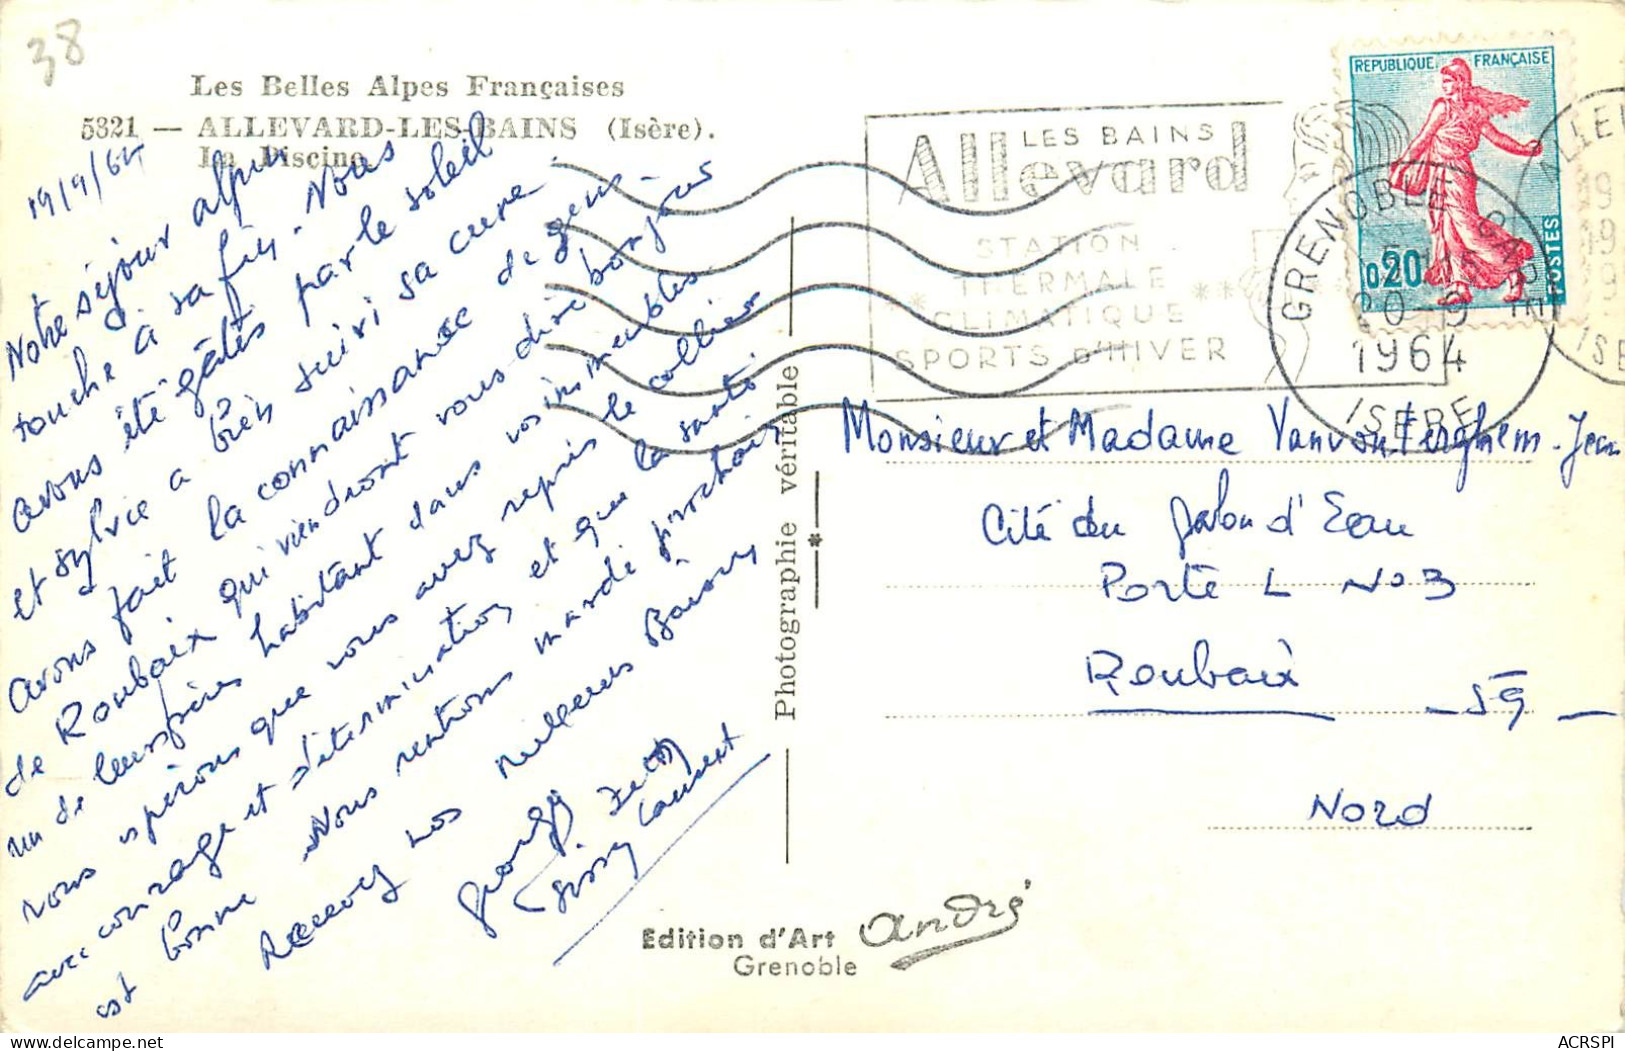 38
Les Belles Alpes Françaises
5821 — ALLEVARD-LES-BAINS (Isère).
La Piscine
19/9/64
Notre séjour alpin
touche à sa fin. Nous
avons été gâtés par le soleil
et Sylvie a bien suivi sa cure.
Avons fait la connaissance de gens
de Roubaix qui viendront vous dire bonjour
un de leurs frères habitant dans vos immeubles.
Nous espérons que vous avez repris le collier
avec courage et détermination, et que la santé
est bonne. Nous rentrons mardi prochain
Recevez nos meilleurs Baisers
Photographie véritable
Edition d'Art André
Grenoble
REPUBLIQUE FRANÇAISE
0,20
POSTES
LES BAINS
Allevard
STATION
THERMALE
CLIMATIQUE
SPORTS D'HIVER
GRENOBLE GARE
20-9
1964
ISERE
Monsieur et Madame Jean
Cité du Jalon d'Eau
Porte L N°3
Roubaix _ 59 _
Nord
ACRSPI